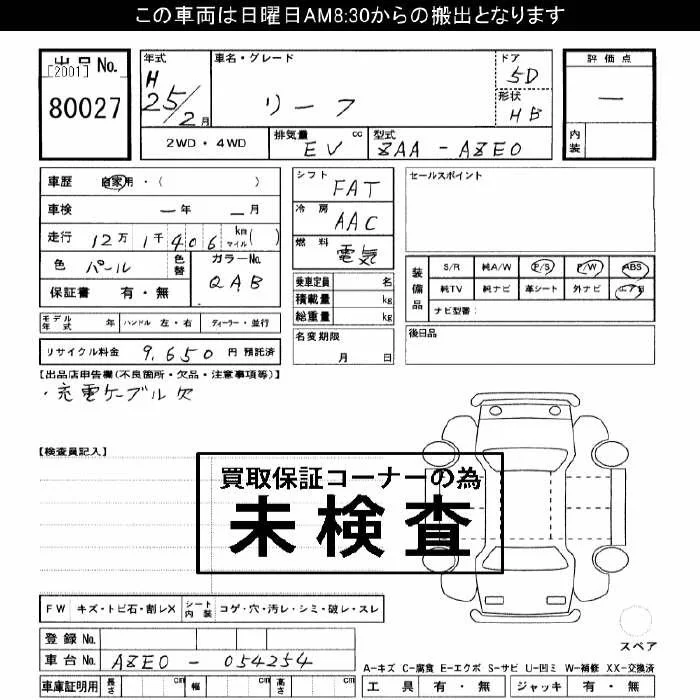 この車両は日曜日AM8:30からの搬出となります
出品No.
[2001]
80027
年式
H 25/2月
車名・グレード
リーフ
ドア
5D
形状
HB
評価点
—
内装
2WD・4WD
排気量 cc
EV
型式
ZAA - AZE0
車歴 自家用・( )
車検 — 年 — 月
走行 12万1千406 km マイル( )
色 パール 色替
カラーNo.
QAB
保証書 有・無
シフト
FAT
冷房
AAC
燃料
電気
乗車定員 名
積載量 kg
総重量 kg
名変期限
月 日
セールスポイント
装備品
S/R 純A/W P/S P/W ABS
純TV 純ナビ 革シート 外ナビ エアB
ナビ型番:
後日品
モデル年式 年 ハンドル 左・右 ディーラー・並行
リサイクル料金 9,650 円 預託済
【出品店申告欄(不良箇所・欠品・注意事項等)】
・充電ケーブル欠
【検査員記入】
買取保証コーナーの為
未検査
FW キズ・トビ石・割レX シート内装 コゲ・穴・汚レ・シミ・破レ・スレ
登録No.
車台No. AZE0 - 054254
車庫証明用 長さ cm 幅 cm 高さ cm
スペア
A-キズ C-腐食 E-エクボ S-サビ U-凹ミ W-補修 XX-交換済
工具 有・無 ジャッキ 有・無